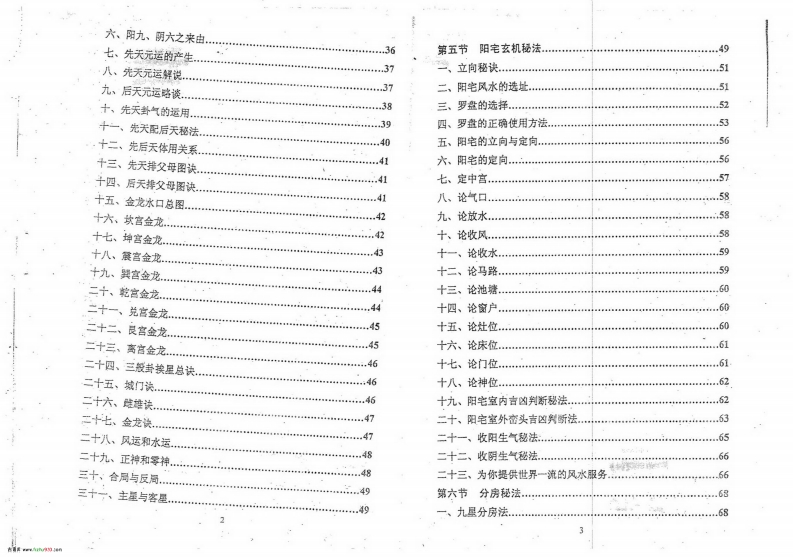 六、阳九、阴六之来由................36
七、先天元运的产生................37
八、先天元运解说................37
九、后天元运略谈................38
十、先天卦气的运用................39
十一、先天配后天秘法................40
十二、先后天体用关系................41
十三、先天排父母图诀................41
十四、后天排父母图诀................41
十五、金龙水口总图................42
十六、坎宫金龙................42
十七、坤宫金龙................43
十八、震宫金龙................43
十九、巽宫金龙................44
二十、乾宫金龙................44
二十一、兑宫金龙................45
二十二、艮宫金龙................45
二十三、离宫金龙................46
二十四、三般卦挨星总诀................46
二十五、城门诀................46
二十六、雌雄诀................47
二十七、金龙诀................47
二十八、风运和水运................48
二十九、正神和零神................48
三十、合局与反局................49
三十一、主星与客星................49
2
第五节 阳宅玄机秘法................49
一、立向秘诀................51
二、阳宅风水的选址................51
三、罗盘的选择................52
四、罗盘的正确使用方法................53
五、阳宅的立向与定向................56
六、阳宅的定向................56
七、定中宫................57
八、论气口................58
九、论放水................58
十、论收风................58
十一、论收水................59
十二、论马路................59
十三、论池塘................60
十四、论窗户................60
十五、论灶位................60
十六、论床位................61
十七、论门位................61
十八、论神位................62
十九、阳宅室内吉凶判断秘法................62
二十、阳宅室外峦头吉凶判断法................63
二十一、收阳生气秘法................65
二十二、收阴生气秘法................66
二十三、为你提供世界一流的风水服务................66
第六节 分房秘法................68
一、九星分房法................68
3